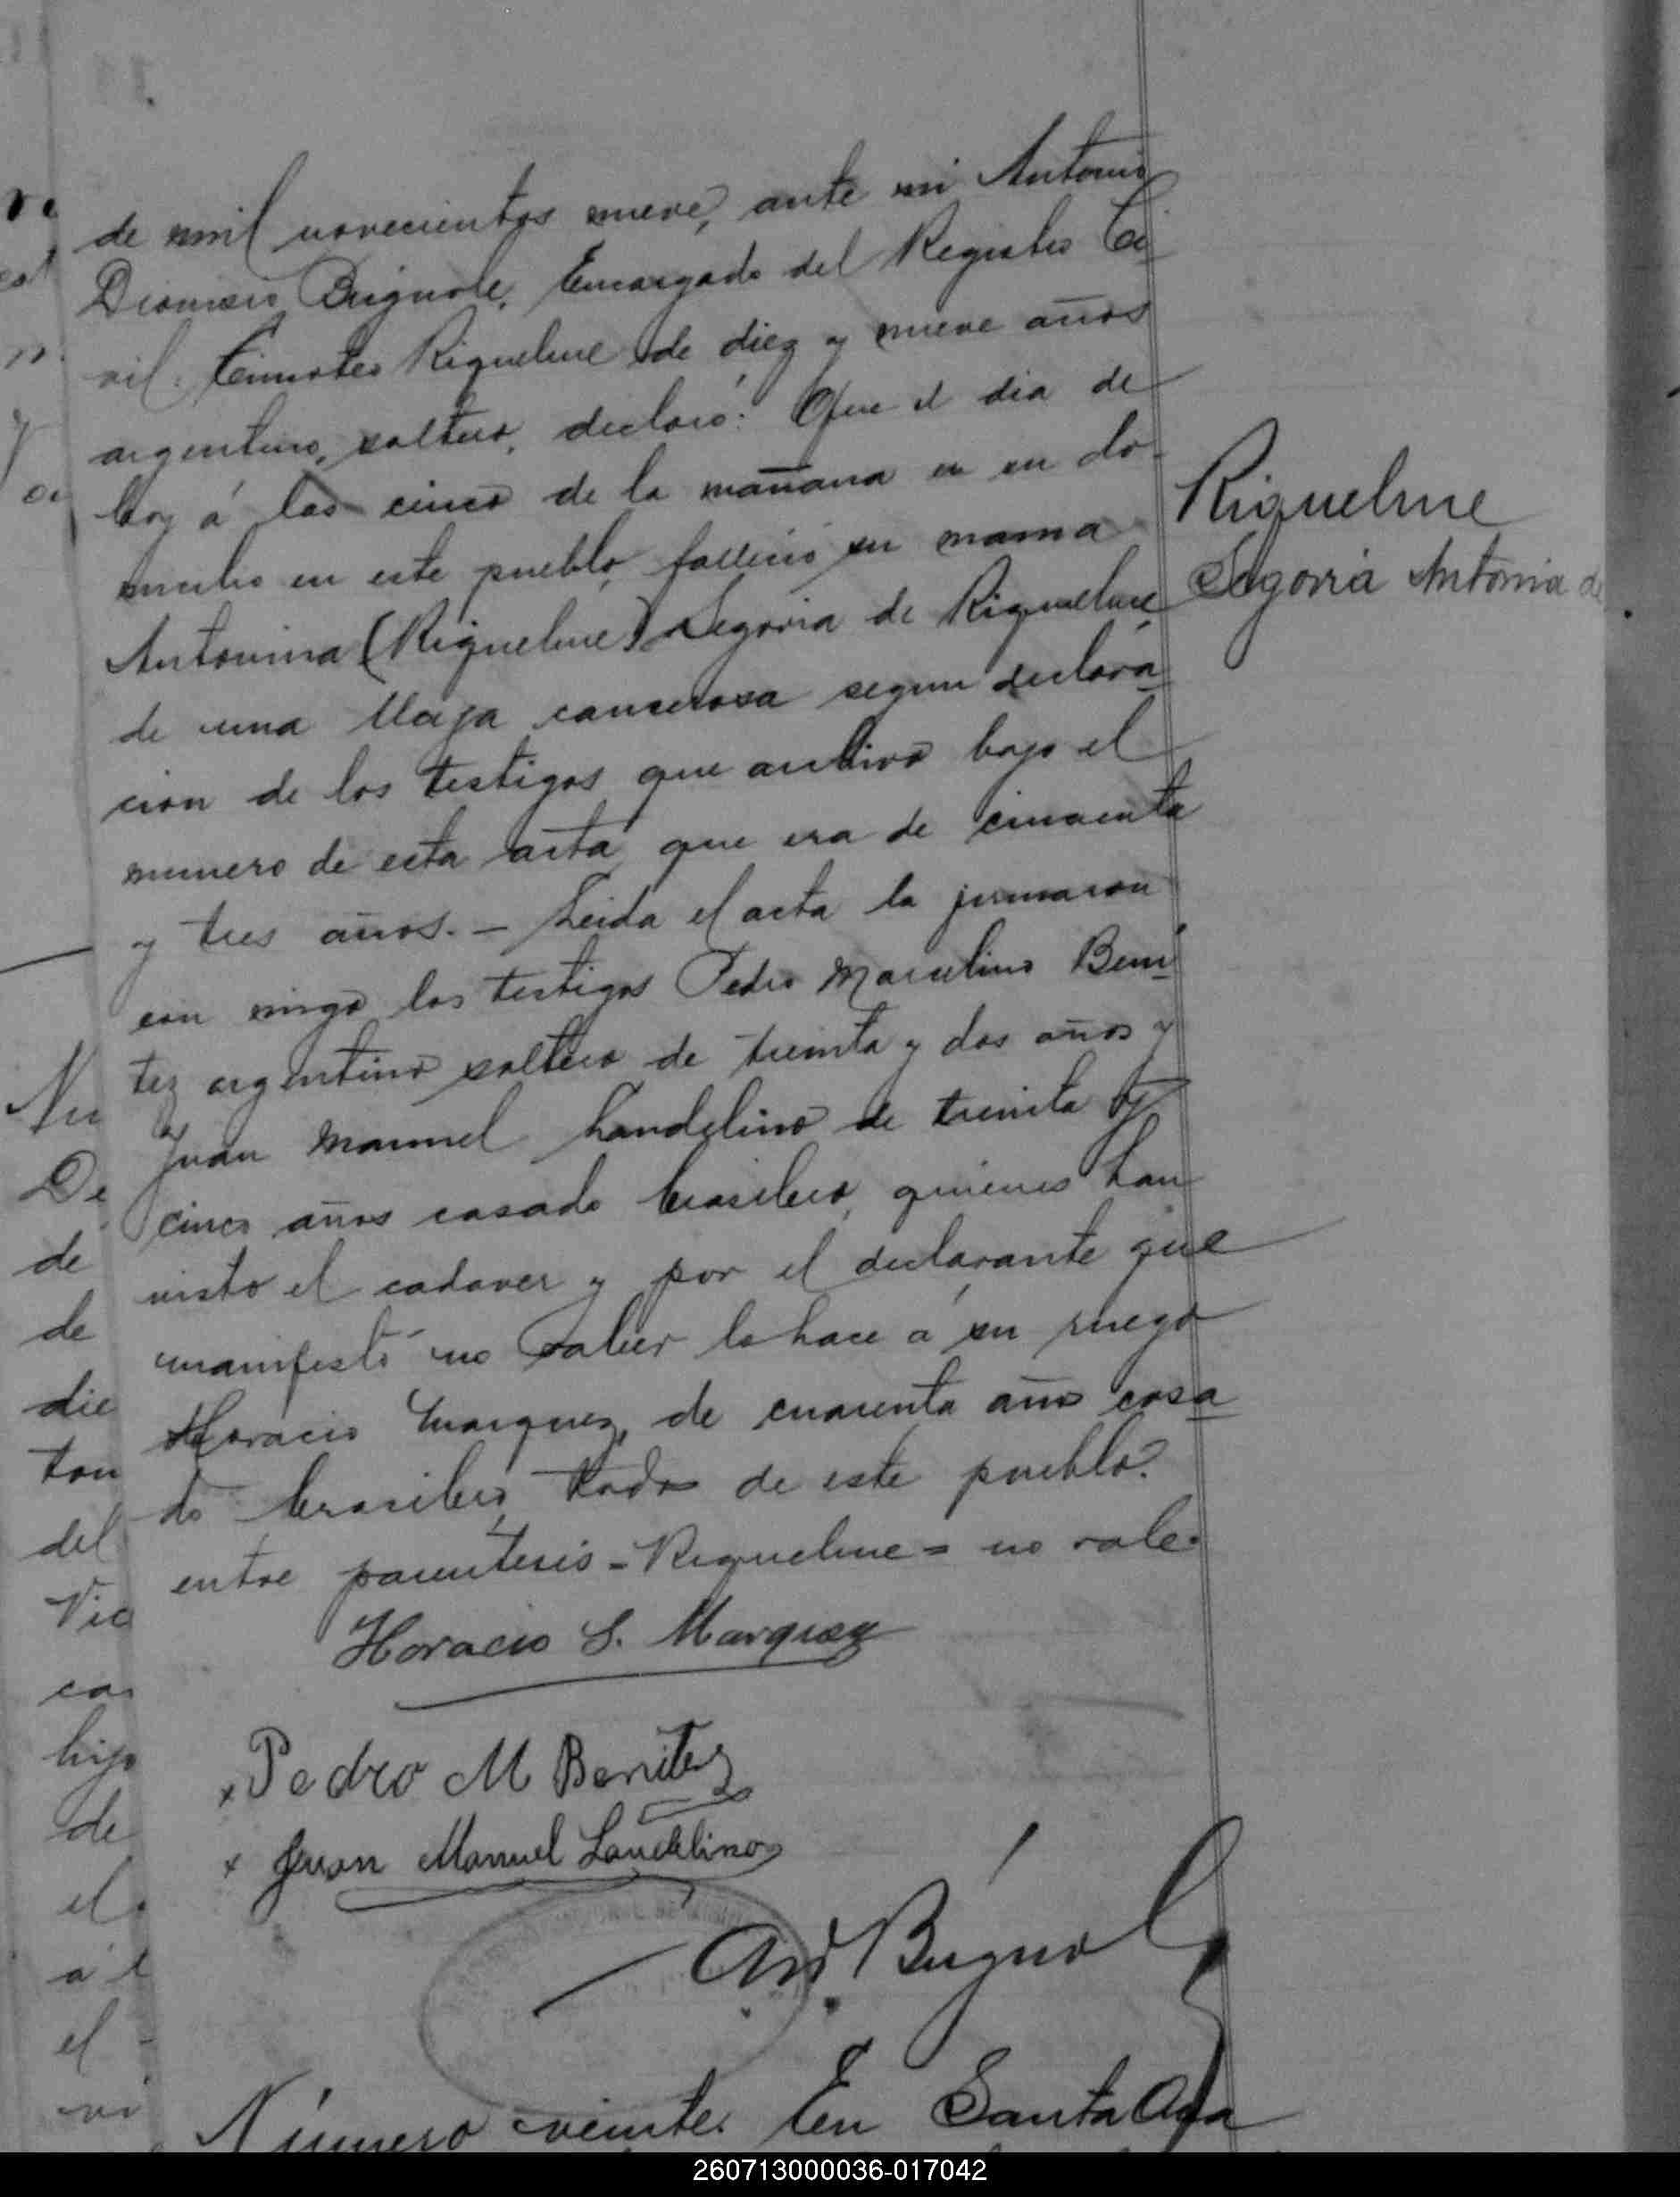 de mil novecientos nueve, ante mi Antonio
Dionisio Brignole, Encargado del Registro Ci
vil. Timoteo Riquelme de diez y nueve años
argentino, soltero, declaró: Que el dia de
hoy á las cinco de la mañana en su do-
micilio en este pueblo, falleció su mama
Antonina (Riquelme) Segovia de Riquelme
de una llaga cancerosa segun declara
cion de los testigos que archivo bajo el
numero de esta acta, que era de cincuenta
y tres años. - Leida el acta la firmaron
con migo los testigos Pedro Marcelino Beni
tez argentino soltero de treinta y dos años y
Juan Manuel Landelino de treinta y
cinco años casado brasilero, quienes han
visto el cadaver y por el declarante que
manifestó no saber lo hace á su ruego
Horacio Marquez, de cuarenta años casa
do brasilero, todos de este pueblo.
entre parentesis - Riquelme = no vale.
Riquelme
Segovia Antonia de
Horacio S. Marquez
x Pedro M Benitez
x Juan Manuel Landelino
Ant. D. Brignole
Número veinte. En Santa Ana
Nu
De
de
de
die
ton
del
Vic
cas
hijo
de
el
á l
el
vi
260713000036-017042